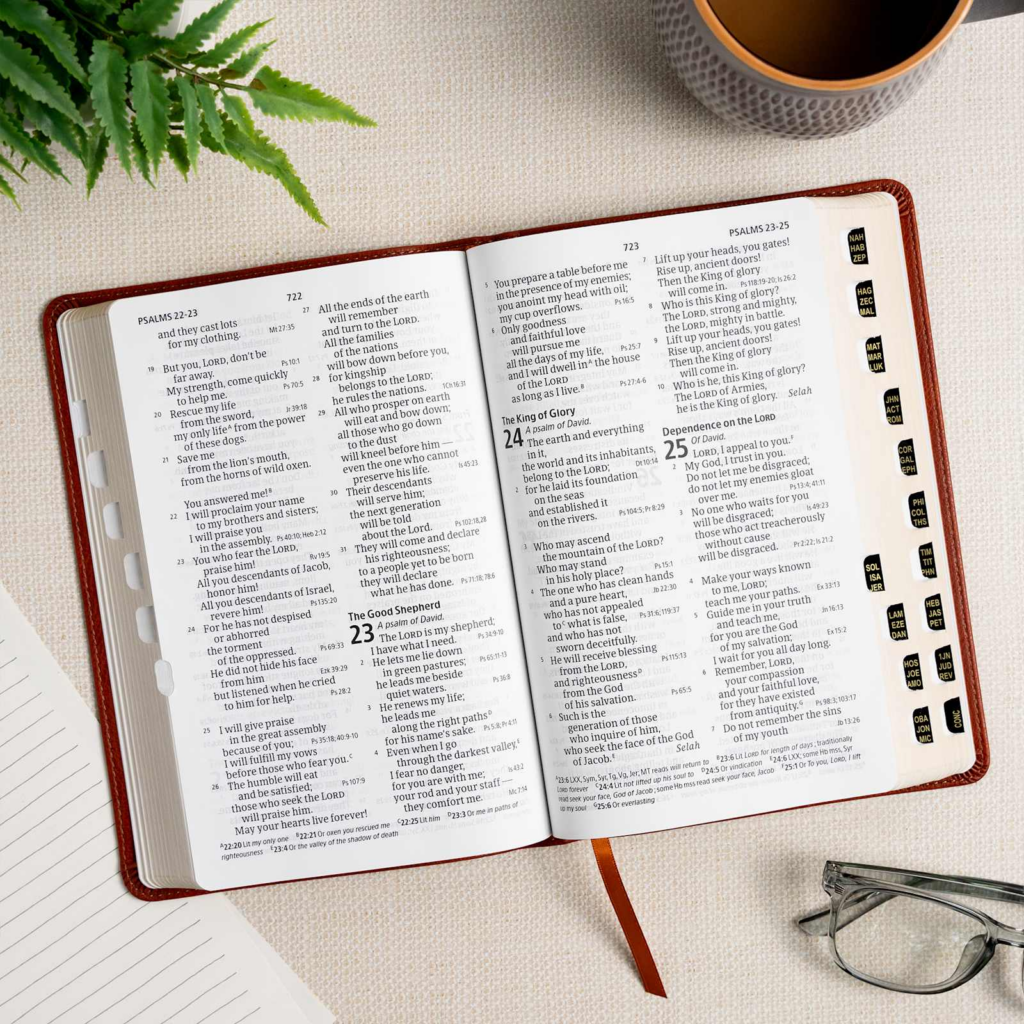 PSALMS 22-23
722
and they cast lots
for my clothing. Mt 27:35
19 But you, LORD, don't be
far away. Ps 10:1
My strength, come quickly
to help me. Ps 70:5
20 Rescue my life
from the sword, Jr 39:18
my only lifeᴬ from the power
of these dogs.
21 Save me
from the lion's mouth,
from the horns of wild oxen.
You answered me!ᴮ
22 I will proclaim your name
to my brothers and sisters;
I will praise you
in the assembly. Ps 40:10; Heb 2:12
23 You who fear the LORD,
praise him! Rv 19:5
All you descendants of Jacob,
honor him!
All you descendants of Israel,
revere him! Ps 135:20
24 For he has not despised
or abhorred
the torment
of the oppressed. Ps 69:33
He did not hide his face
from him Ezk 39:29
but listened when he cried
to him for help. Ps 28:2
25 I will give praise
in the great assembly
because of you; Ps 35:18; 40:9-10
I will fulfill my vows
before those who fear you.ᶜ
26 The humble will eat
and be satisfied; Ps 107:9
those who seek the LORD
will praise him.
May your hearts live forever!
27 All the ends of the earth
will remember
and turn to the LORD.
All the families
of the nations
will bow down before you,
28 for kingship
belongs to the LORD;
he rules the nations. 1Ch 16:31
29 All who prosper on earth
will eat and bow down;
all those who go down
to the dust
will kneel before him —
even the one who cannot
preserve his life. Is 45:23
30 Their descendants
will serve him;
the next generation
will be told
about the Lord. Ps 102:18,28
31 They will come and declare
his righteousness;
to a people yet to be born
they will declare
what he has done. Ps 71:18; 78:6
The Good Shepherd
23 A psalm of David.
The LORD is my shepherd;
I have what I need. Ps 34:9-10
2 He lets me lie down
in green pastures; Ps 65:11-13
he leads me beside
quiet waters.
3 He renews my life; Ps 36:8
he leads me
along the right pathsᴰ
for his name's sake. Ps 5:8; Pr 4:11
4 Even when I go
through the darkest valley,ᴱ
I fear no danger,
for you are with me; Is 43:2
your rod and your staff —
they comfort me. Mc 7:14
ᴬ22:20 Lit my only one ᴮ22:21 Or oxen you rescued me ᶜ22:25 Lit him ᴰ23:3 Or me in paths of
righteousness ᴱ23:4 Or the valley of the shadow of death
723
PSALMS 23-25
5 You prepare a table before me
in the presence of my enemies;
you anoint my head with oil;
my cup overflows. Ps 16:5
6 Only goodness
and faithful love
will pursue me
all the days of my life, Ps 25:7
and I will dwell inᴬ the house
of the LORD
as long as I live.ᴮ Ps 27:4-6
The King of Glory
24 A psalm of David.
The earth and everything
in it,
the world and its inhabitants,
belong to the LORD; Dt 10:14
2 for he laid its foundation
on the seas
and established it
on the rivers. Ps 104:5; Pr 8:29
3 Who may ascend
the mountain of the LORD?
Who may stand
in his holy place? Ps 15:1
4 The one who has clean hands
and a pure heart, Jb 22:30
who has not appealed
toᶜ what is false, Ps 31:6; 119:37
and who has not
sworn deceitfully.
5 He will receive blessing
from the LORD, Ps 115:13
and righteousnessᴰ
from the God
of his salvation. Ps 65:5
6 Such is the
generation of those
who inquire of him,
who seek the face of the God
of Jacob.ᴱ Selah
7 Lift up your heads, you gates!
Rise up, ancient doors!
Then the King of glory
will come in. Ps 118:19-20; Is 26:2
8 Who is this King of glory?
The LORD, strong and mighty,
the LORD, mighty in battle.
9 Lift up your heads, you gates!
Rise up, ancient doors!
Then the King of glory
will come in.
10 Who is he, this King of glory?
The LORD of Armies,
he is the King of glory. Selah
Dependence on the LORD
25 Of David.
LORD, I appeal to you.ᶠ
2 My God, I trust in you.
Do not let me be disgraced;
do not let my enemies gloat
over me. Ps 13:4; 41:11
3 No one who waits for you
will be disgraced; Is 49:23
those who act treacherously
without cause
will be disgraced. Ps 2:22; Is 21:2
4 Make your ways known
to me, LORD;
teach me your paths. Ex 33:13
5 Guide me in your truth
and teach me, Jn 16:13
for you are the God
of my salvation;
I wait for you all day long.
6 Remember, LORD, Ex 15:2
your compassion
and your faithful love,
for they have existed
from antiquity.ᴳ Ps 98:3; 103:17
7 Do not remember the sins
of my youth Jb 13:26
ᴬ23:6 LXX, Sym, Syr, Tg, Vg, Jer; MT reads will return to ᴮ23:6 Lit LORD for length of days; traditionally
LORD forever ᶜ24:4 Lit not lifted up his soul to ᴰ24:5 Or vindication ᴱ24:6 LXX; some Hb mss, Syr
read seek your face, God of Jacob; some Hb mss read seek your face, Jacob ᶠ25:1 Or To you, LORD, I lift
up my soul ᴳ25:6 Or everlasting
NAH
HAB
ZEP
HAG
ZEC
MAL
MAT
MAR
LUK
JHN
ACT
ROM
COR
GAL
EPH
PHI
COL
THS
TIM
TIT
PHN
HEB
JAS
PET
1JN
JUD
REV
CONC
SOL
ISA
JER
LAM
EZE
DAN
HOS
JOE
AMO
OBA
JON
MIC